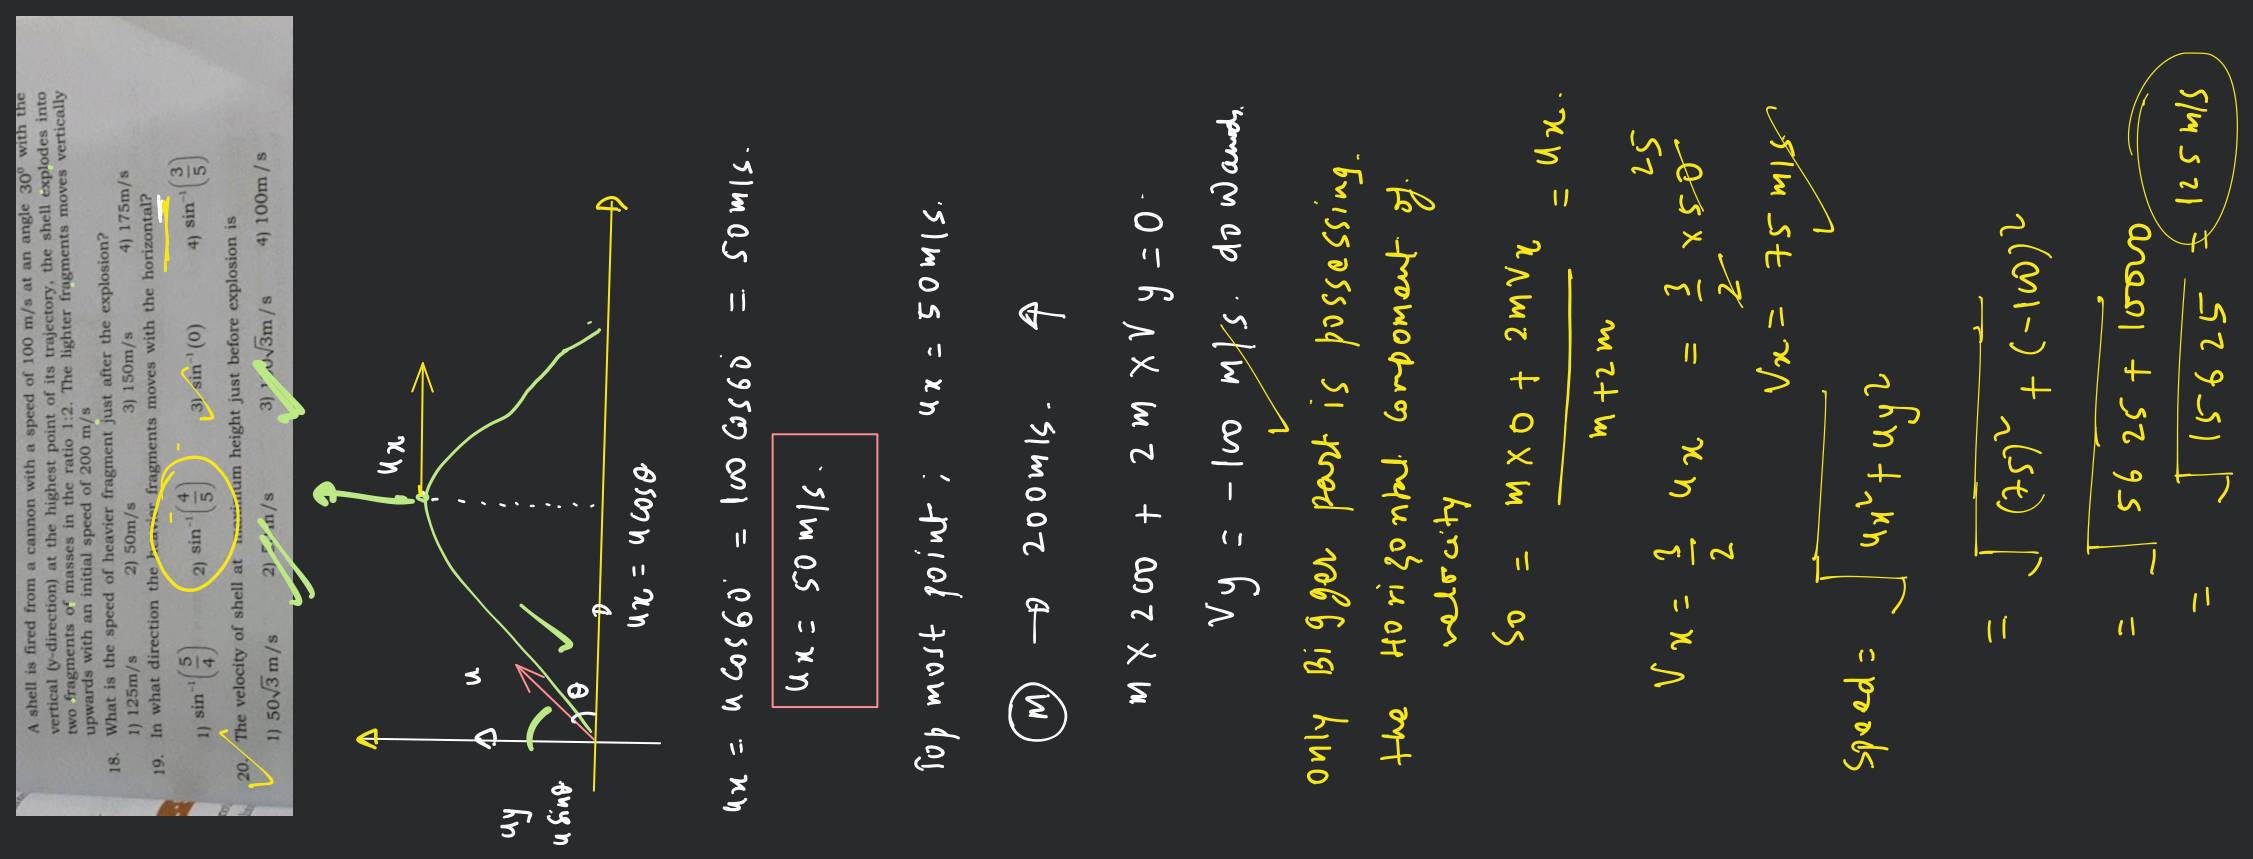 A shell is fired from a cannon with a speed of 100 m/s at an angle 30° with the
vertical (y-direction) at the highest point of its trajectory, the shell explodes into
two fragments of masses in the ratio 1:2. The lighter fragments moves vertically
upwards with an initial speed of 200 m/s
18. What is the speed of heavier fragment just after the explosion?
1) 125m/s 2) 50m/s 3) 150m/s 4) 175m/s
19. In what direction the heavier fragments moves with the horizontal?
1) sin⁻¹(5/4) 2) sin⁻¹(4/5) 3) sin⁻¹(0) 4) sin⁻¹(3/5)
20. The velocity of shell at maximum height just before explosion is
1) 50√3 m/s 2) m/s 3) √3m/s 4) 100m/s
ux
u
θ
uy
u sinθ
ux = u cosθ
ux = u cos60° = 100 cos60° = 50 m/s.
ux = 50 m/s.
Top most point ; ux = 50 m/s.
m → 200m/s. ↑
m x 200 + 2m x Vy = 0
Vy = -100 m/s. downwards.
only Bigger part is possessing.
the Horizontal compoment of.
velocity
So = m x 0 + 2m Vx / m+2m = ux.
Vx = 3/2 ux = 3/2 x 50 25
Vx = 75 m/s
Speed = √ux² + uy²
= √(75)² + (-100)²
= √5625 + 10000
= √15625 = 125 m/s